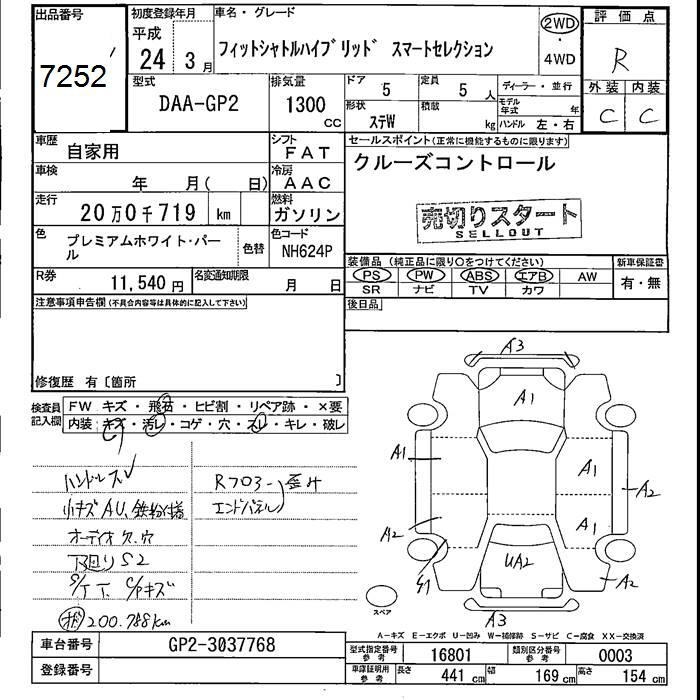 出品番号
7252
初度登録年月
平成
24年 3月
車名・グレード
フィットシャトルハイブリッド スマートセレクション
2WD
・
4WD
評価点
R
外装 内装
C C
型式
DAA-GP2
排気量
1300
CC
ドア
5
定員
5人
ディーラー・並行
形状
ステW
積載
kg
モデル年式 年
ハンドル 左・右
車歴
自家用
シフト
FAT
車検
年 月( 日)
冷房
AAC
走行
20万0千719 km
燃料
ガソリン
色
プレミアムホワイト・パール
色替
色コード
NH624P
R券
11,540円
名変通知期限
月 日
セールスポイント(正常に機能するものに限ります)
クルーズコントロール
売切りスタート
SELLOUT
装備品(純正品に限り○をつけてください)
PS PW ABS エアB AW
SR ナビ TV カワ
新車保証書
有・無
後日品
注意事項申告欄(不具合内容等は具体的に記入して下さい)
修復歴 有〔箇所 〕
検査員記入欄
FW キズ・飛石・ヒビ割・リペア跡・×要
内装 キズ・汚レ・コゲ・穴・スレ・キレ・破レ
ハンドルスレ
小キズAU、鉄粉仕様
オーディオ欠、穴
下廻りS2
オド 200,788km
R703-歪み
エンドパネル
A3
A1
A1
A1
A2
A1
A2
UA2
A2
A3
スペア
A-キズ E-エクボ U-凹み W-補修跡 S-サビ C-腐食 XX-交換済
車台番号
GP2-3037768
登録番号
型式指定番号
参考
16801
類別区分番号
参考
0003
車庫証明用
参考
長さ
441 cm
幅
169 cm
高さ
154 cm